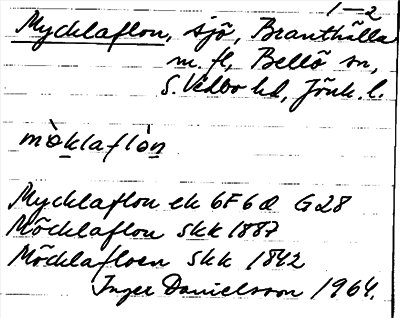 1–2
Mycklaflon, sjö, Branthålla
m. fl, Bellö sn,
S. Vedbo hd, Jönk. l.
mò̀klaflòn
Mycklaflon ek 6F6d G28
Möcklaflon skk 1887
Möcklafloen skk 1842
Inger Danielsson 1964.